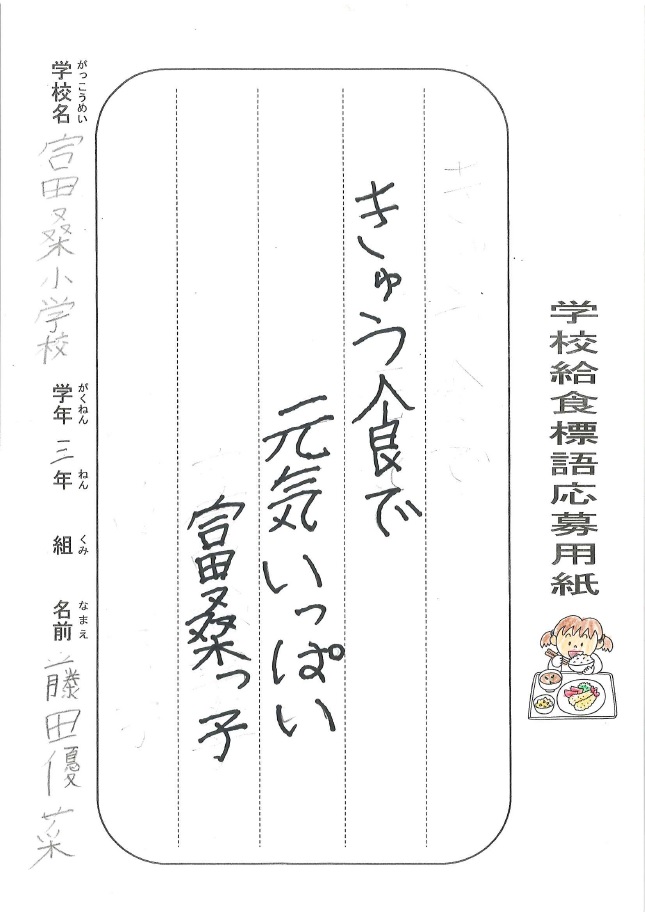 学校給食標語応募用紙
きゅう食で
元気いっぱい
富田桑っ子
学校名 富田桑小学校 学年 三年 組 名前 藤田優菜
がっこうめい がくねん ねん くみ なまえ